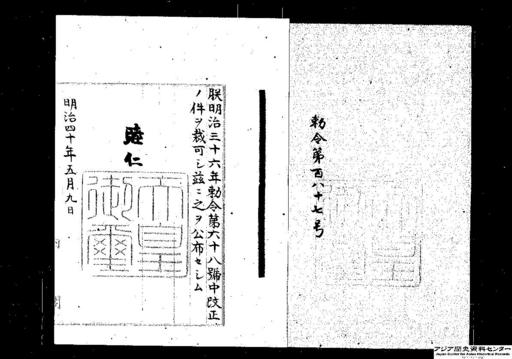 勅令第百八十七号
朕明治三十六年勅令第六十八號中改正
ノ件ヲ裁可シ茲ニ之ヲ公布セシム
睦仁
天皇
御璽
明治四十年五月九日
アジア歴史資料センター
Japan Center for Asian Historical Records